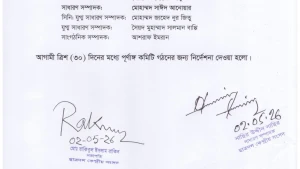 সাধারণ সম্পাদক: মোহাম্মদ সাঈদ আনোয়ার
সিনি: যুগ্ম সাধারণ সম্পাদক: মোহাম্মদ জাহেদ নুর জিতু
যুগ্ম সাধারণ সম্পাদক: সৈয়দ মুহাম্মদ সালমান বাতি
সাংগঠনিক সম্পাদক: আশরাফ ইমরান
আগামী ত্রিশ (৩০) দিনের মধ্যে পূর্ণাঙ্গ কমিটি গঠনের জন্য নির্দেশনা দেওয়া হলো।
02-05-26
02.05.26
মোঃ রাকিবুল ইসলাম রাকিব
সভাপতি
ছাত্রদল কেন্দ্রীয় সংসদ
নাছির উদ্দীন নাছির
ছাত্রদল কেন্দ্রীয় সংসদ